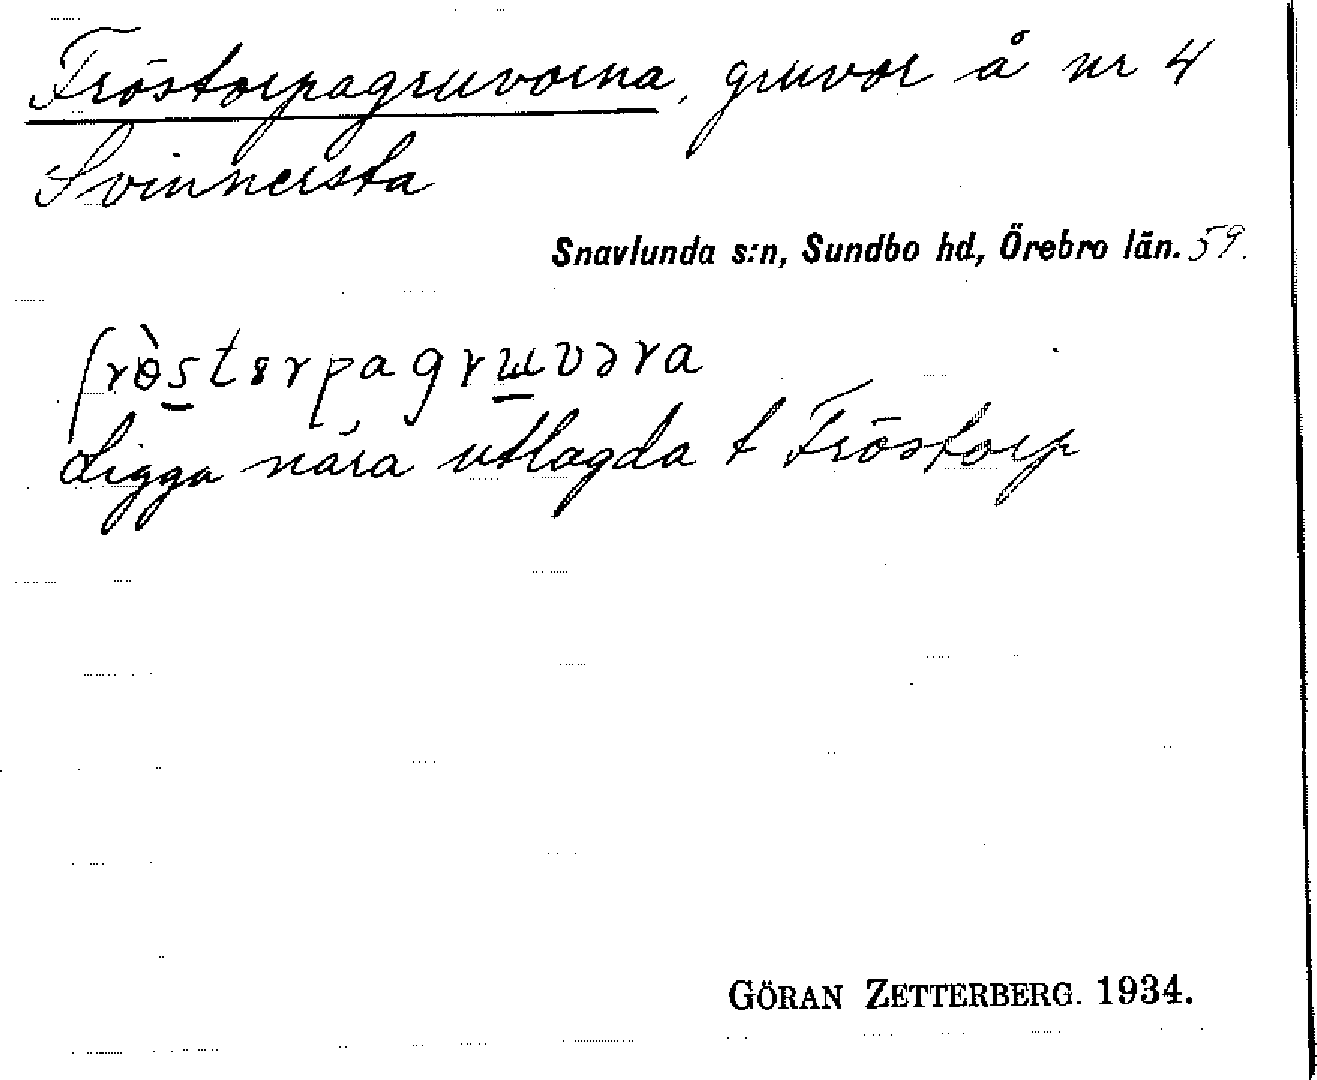 Fröstorpagruvorna, gruvor å nr 4
Svinnersta
Snavlunda s:n, Sundbo hd, Örebro län. 59.
frɵ̀stɘrpagrɯvəra
Ligga nära utlagda t Fröstorp
GÖRAN ZETTERBERG. 1934.